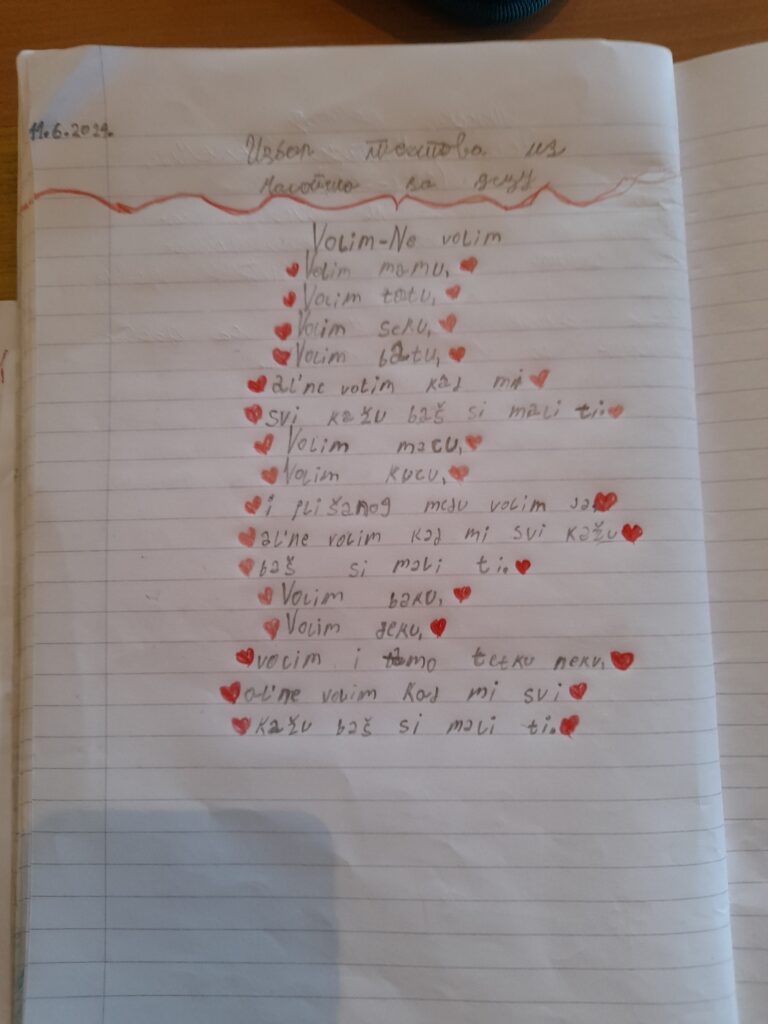 11.6.2021.
Избор текстова из
часописа за децу
Volim-Ne volim
Volim mamu,
Volim tatu,
Volim seku,
Volim batu,
al'ne volim kad mi
svi kažu baš si mali ti.
Volim macu,
Volim kucu,
i plišanog medu volim ja,
al'ne volim kad mi svi kažu
baš si mali ti.
Volim baku,
Volim deku,
volim i tamo tetku neku,
al'ne volim kad mi svi
kažu baš si mali ti.